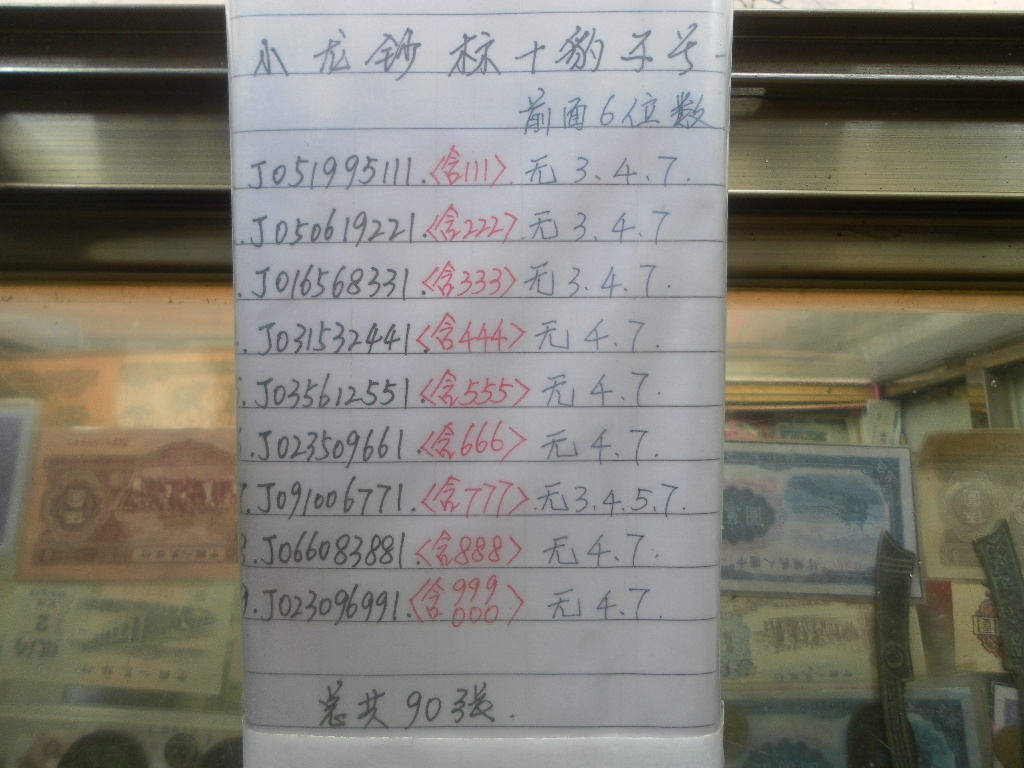 小龙钞 标十豹子号
前面6位数
J051995111.<含111>.无3.4.7.
.J050619221.<含222>.无3.4.7
.J016568331.<含333>无3.4.7.
.J031532441<含444>无4.7.
.J035612551.<含555>无4.7.
.J023509661.<含666>无4.7.
7.J091006771.<含777>.无3.4.5.7.
8.J066083881<含888>无4.7.
9.J023096991.<含999 000>无4.7.
总共90张.